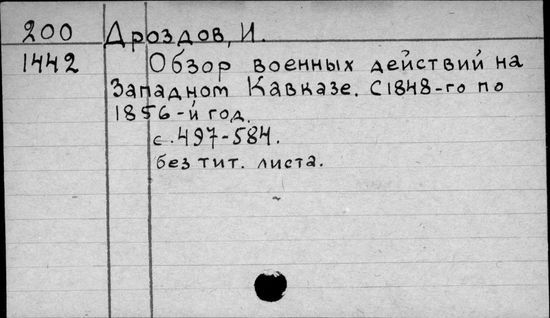 200 Дроздов, И.
1442 Обзор военных действий на
Западном Кавказе. С 1848-го по
1856-й год.
с. 497-584.
без тит. листа.